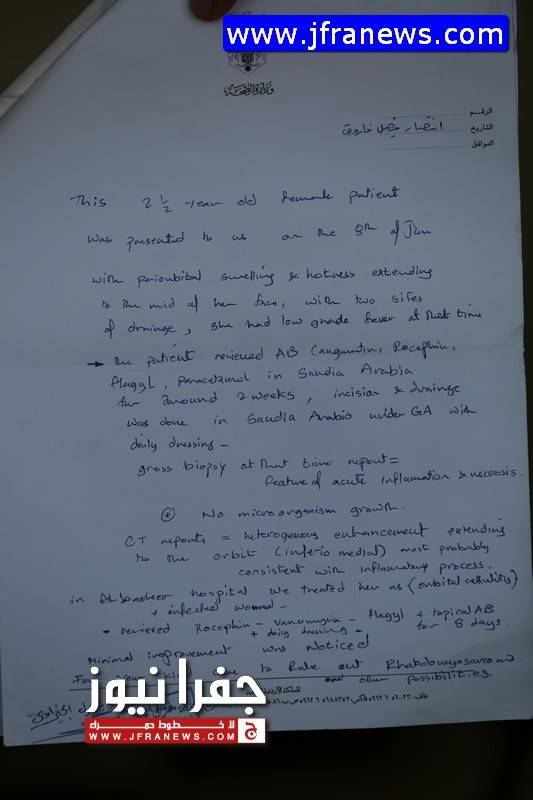 www.jfranews.com
وزارة الصحة
الرقم
التاريخ
الموافق
This 2 1/2 -year old female patient
was presented to us on the 8th of Jan
with periorbital swelling & hotness extending
to the mid of her face, with two sites
of drainge, she had low grade fever at that time
→ the patient recieved AB (augmentin, Rocephin,
flagyl, paracetamol in Saudia Arabia
for around 2 weeks, incision & drainge
was done in Saudia Arabia under GA with
daily dressing -
gross biopsy at that time report =
feature of acute inflamation & necrosis.
⊕ No microorganism growth.
CT reports = heterogenous enhancement extending
to the orbit (inferio medial) most probably
consistent with inflamatory process.
in Al basheer hospital we treated her as (orbital cellulitis)
+ infected wound -
- recieved Rocephin - vancomycin - flagyl + topical AB
+ daily dressing - for 8 days.
Minimal improvement was noticed
For your to Rule out Rhabdomyosarcoma
and other possibilities.
جفرا نيوز
لا خطوط حمراء
WWW.JFRANEWS.COM